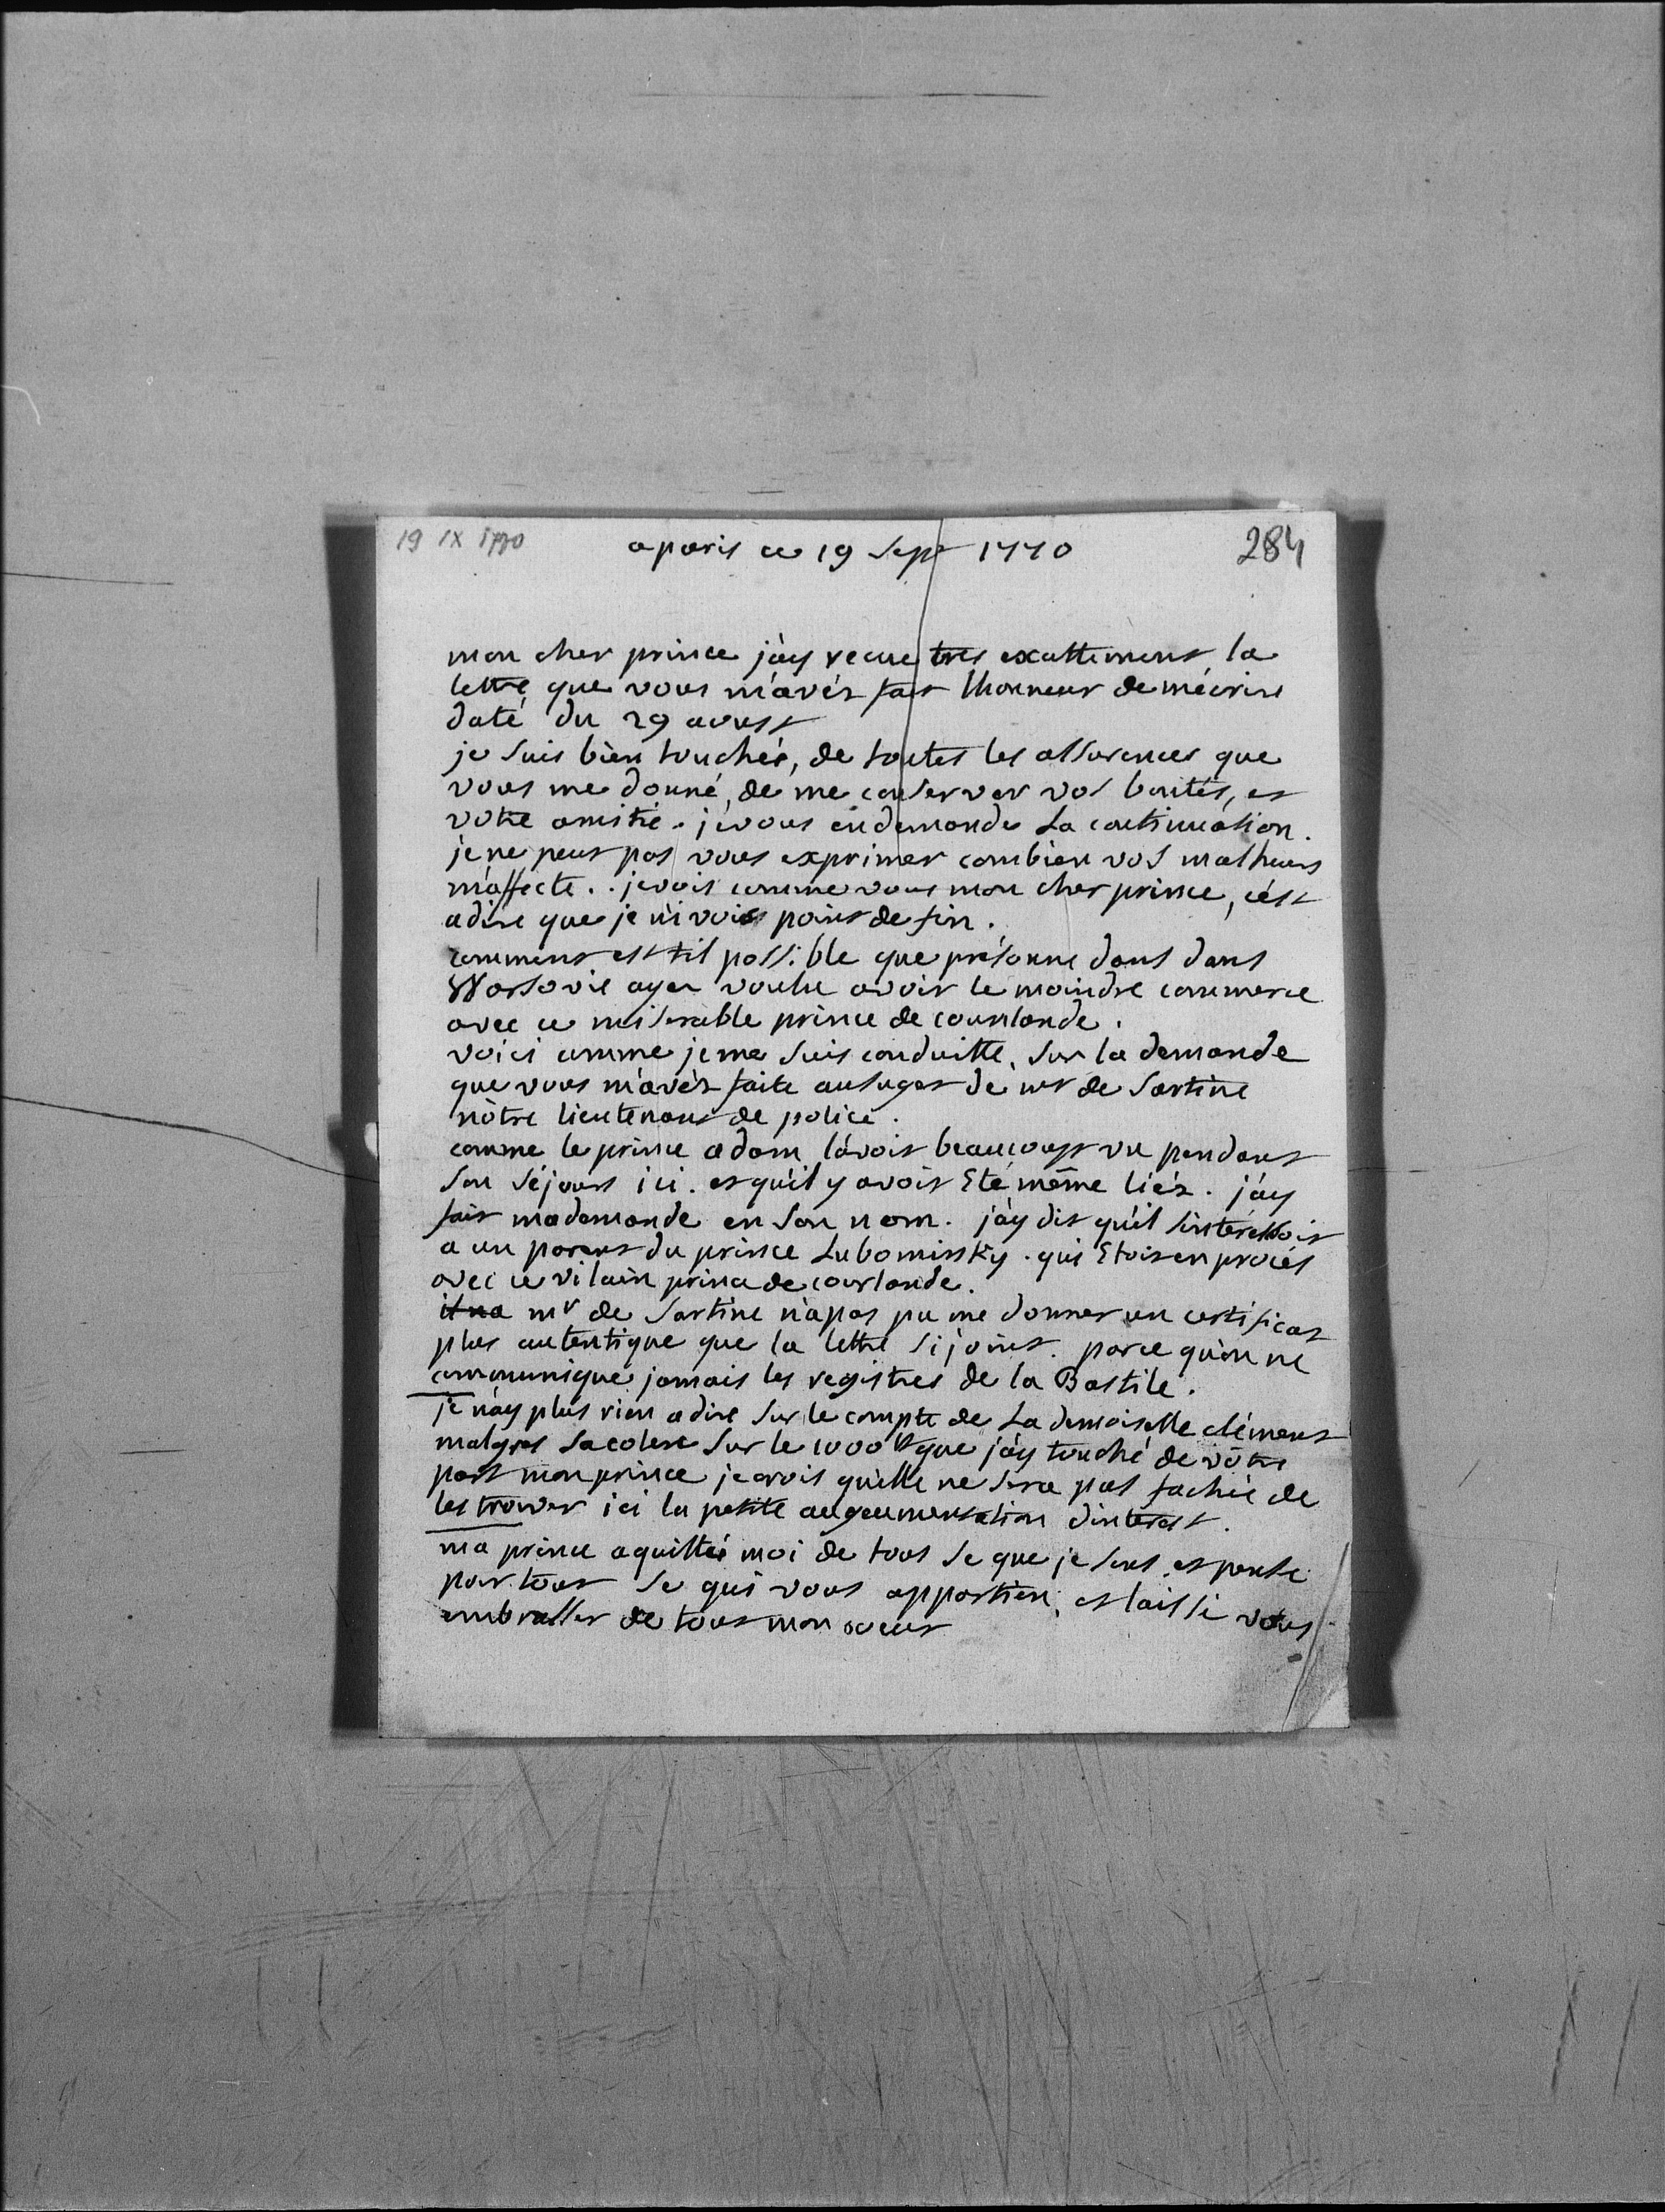 19 IX 1770
a paris ce 19 Sept 1770
284
mon cher prince j'ày recue tres exattement la
lettre que vous m'avés fait lhonneur de mécrire
daté du 29 aoust
je suis bien touchéé, de toutes les assurences que
vous me donné, de me conserver vos bontés, et
votre amitié. je vous en demande La continuation.
je ne peut pas vous exprimer combien vos malheurs
m'affecte.. je vois comme vous mon cher prince, cést
a dire que je n'i vois point de fin.
comment est til possible que présonne dans dans
Warsovie ayer voulu avoir le moindre commerce
avec ce miserable prince de courlande.
voici comme je me suis conduitte, sur la demande
que vous m'avés faite au sujet de mr de Sartine
nòtre lieutenant de police.
comme le prince adam l'avoit beaucoup vu pendant
son séjour ici. et qu'il y avoit Eté même liés. j'ay
fait ma demande en son nom. j'ày dit qu'il s'intéressoit
a un parent du prince Lubomirsky. qui Etoit en procés
avec ce vilain prince de courlande.
il na mr de Sartine n'a pas pu me donner un certificat
plus autentique que la lettre si joint. parce qu'on ne
communique jamais les registres de la Bastile.
je n'ay plus rien a dire sur le compte de La demoiselle clément
malgres sa colere sur le 1000 # que j'ày touché de vôtre
part mon prince je crois qu'elle ne sera pas fachéé de
les trouver ici la petite augeumentation d'interest.
ma prince aquittéé moi de tous se que je sens. et pense
pour tout se qui vous appartien, et laissé vous
embrasser de tout mon coeur